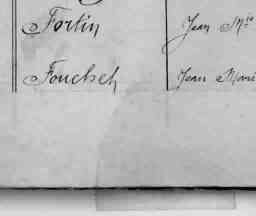 Fortin Jean M.ie
Fouchet Jean Marie